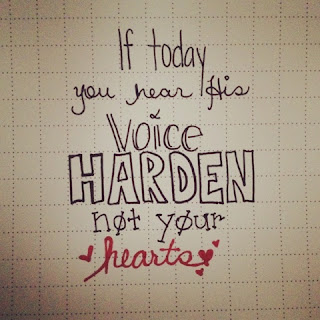 If today
you hear His
voice
HARDEN
not your
hearts